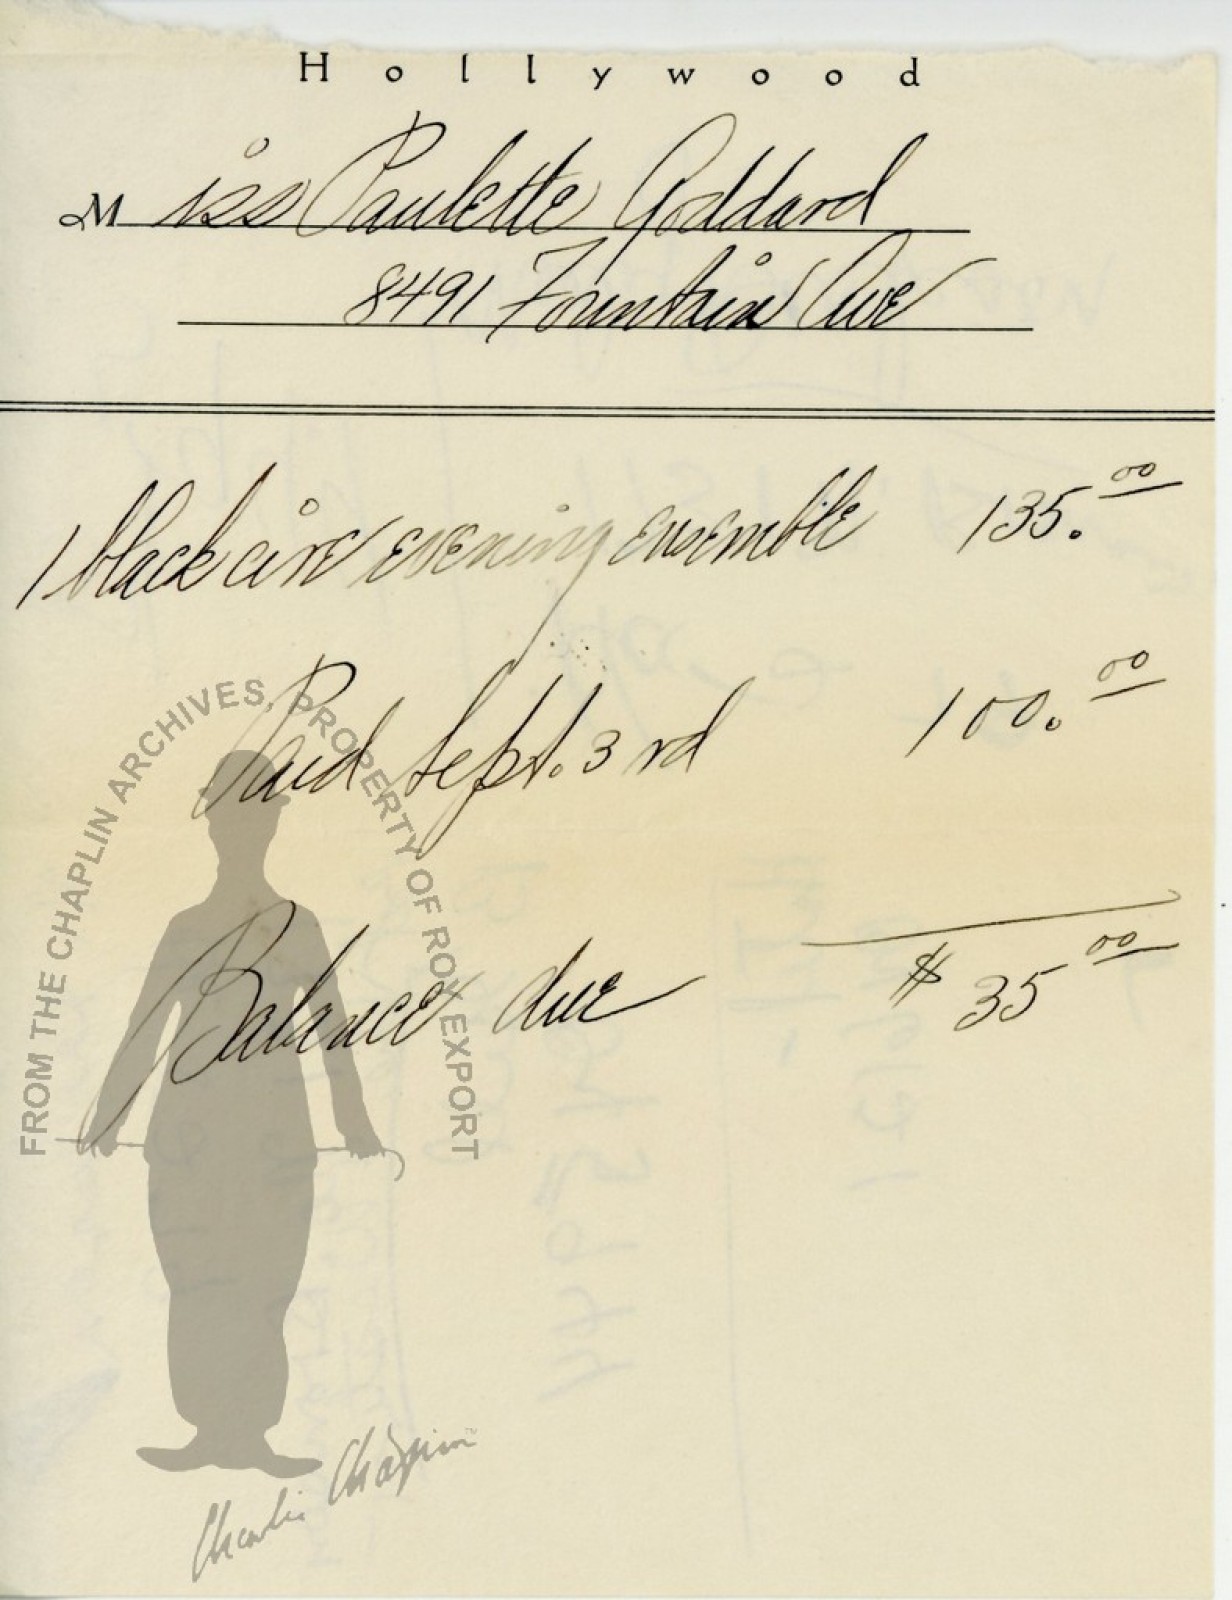 Hollywood
Miss Paulette Goddard
8491 Fountain Ave
1 black cire evening ensemble 135.00
Paid Sept. 3rd 100.00
Balance due $35 00
FROM THE CHAPLIN ARCHIVES, PROPERTY OF ROY EXPORT
Charlie Chaplin